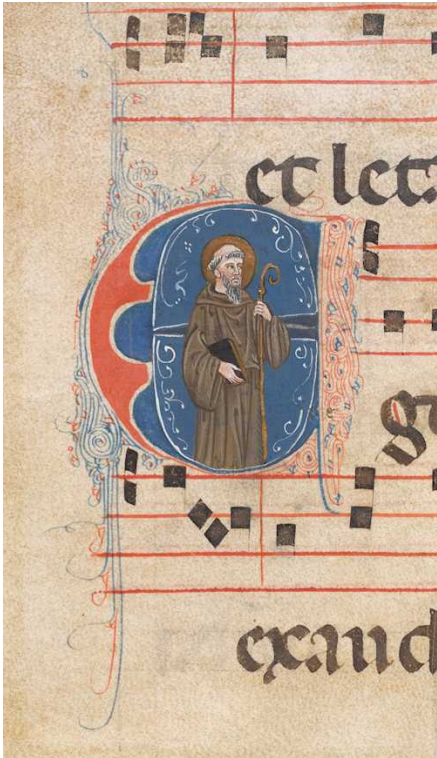 et let
E
g
exaud